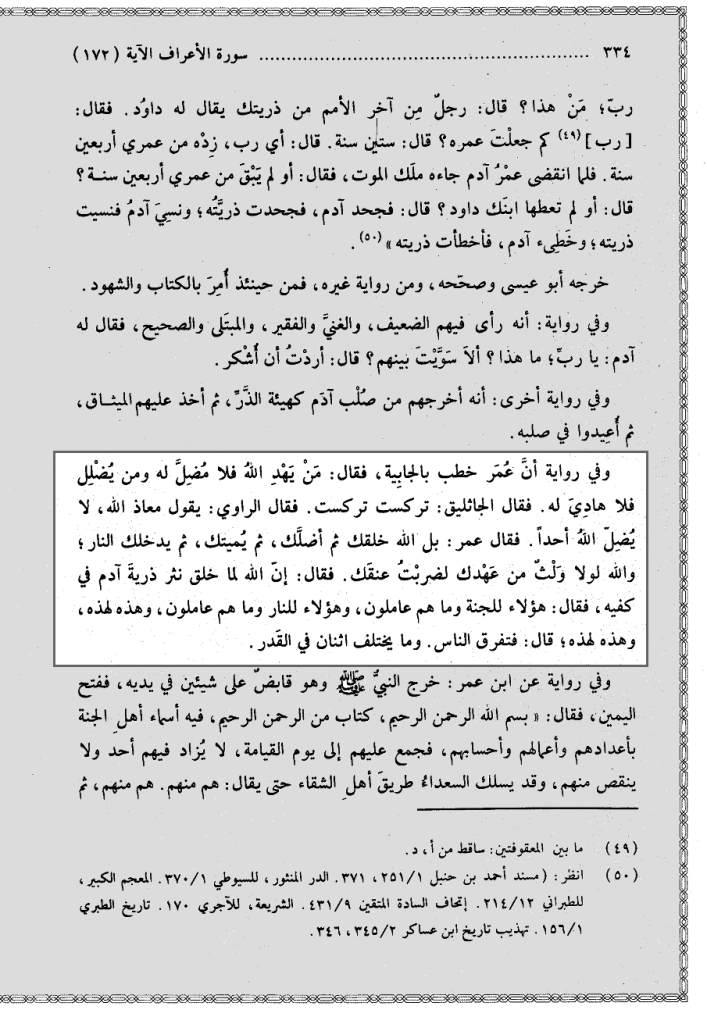 ٣٣٤ ........................................................ سورة الأعراف الآية (١٧٢)
ربّ؛ مَنْ هذا؟ قال: رجلٌ مِن آخِر الأمم من ذريتك يقال له داوُد. فقال:
[رب] (٤٩) كم جعلْتَ عمره؟ قال: ستين سنة. قال: أي رب، زِدْه من عمري أربعين
سنة. فلما انقضى عمْرُ آدم جاءه ملَك الموت، فقال: أو لم يَبْقَ من عمري أربعين سنة؟
قال: أو لم تعطها ابنَك داود؟ قال: فجحد آدم، فجحدت ذريَّتُه؛ ونسِيَ آدمُ فنسيت
ذريته؛ وخَطِىء آدم، فأخطأت ذريته» (٥٠).
خرجه أبو عيسى وصحّحه، ومن رواية غيره، فمن حينئذ أُمِرَ بالكتاب والشهود.
وفي رواية: أنه رأى فيهم الضعيف، والغنيَّ والفقير، والمبتَلى والصحيح، فقال له
آدم: يا ربِّ؛ ما هذا؟ ألاَ سَوَّيْتَ بينهم؟ قال: أردْتُ أن أُشْكر.
وفي رواية أخرى: أنه أخرجهم من صُلْب آدَم كهيئة الذَّرِّ، ثم أخذ عليهم الميثـاق،
ثم أُعِيدوا في صلبه.
وفي رواية أنَّ عُمَر خطب بالجابِية، فقال: مَنْ يَهْدِ اللهُ فلا مُضِلَّ له ومن يُضْلِل
فلا هادِيَ له. فقال الجاثليق: تركست تركست. فقال الراوي: يقول معاذ الله، لا
يُضِلّ اللهُ أحداً. فقال عمر: بل الله خلقك ثم أضلَّك، ثم يُميتك، ثم يدخلك النار؛
والله لولا وَلْثٌ من عَهْدك لضربْتُ عنقَك. فقال: إنّ الله لما خلق نثر ذريةَ آدم في
كفيه، فقال: هؤلاء للجنة وما هم عاملون، وهؤلاء للنار وما هم عاملون، وهذه لهذه،
وهذه لهذه؛ قال: فتفرق الناس. وما يختلف اثنان في القَدر.
وفي رواية عن ابن عمر: خرج النبيُّ ﷺ وهو قابضٌ على شيئين في يديه، ففتح
اليمين، فقال: «بسم الله الرحمن الرحيم، كتاب من الرحمن الرحيم، فيه أسماء أهلِ الجنة
بأعدادهم وأعمالهم وأحسابهم، فجمع عليهم إلى يوم القيامة، لا يُزاد فيهم أحد ولا
ينقص منهم، وقد يسلك السعداءُ طريقَ أهلِ الشقاء حتى يقال: هم منهم. هم منهم، ثم
(٤٩) ما بين المعقوفتين: ساقط من أ، د.
(٥٠) انظر: (مسند أحمد بن حنبل ٢٥١/١، ٣٧١. الدر المنثور، للسيوطي ٣٧٠/١. المعجم الكبير،
للطبراني ٢١٤/١٢. إتحاف السادة المتقين ٤٣١/٩. الشريعة، للآجري ١٧٠. تاريخ الطبري
١٥٦/١. تهذيب تاريخ ابن عساكر ٣٤٥/٢، ٣٤٦.